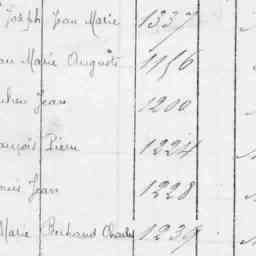 Joseph Jean Marie 1337
Marie Auguste 1156
Jean 1200
François Pierre 1224
Jean 1228
Marie Bertrand Charles 1239